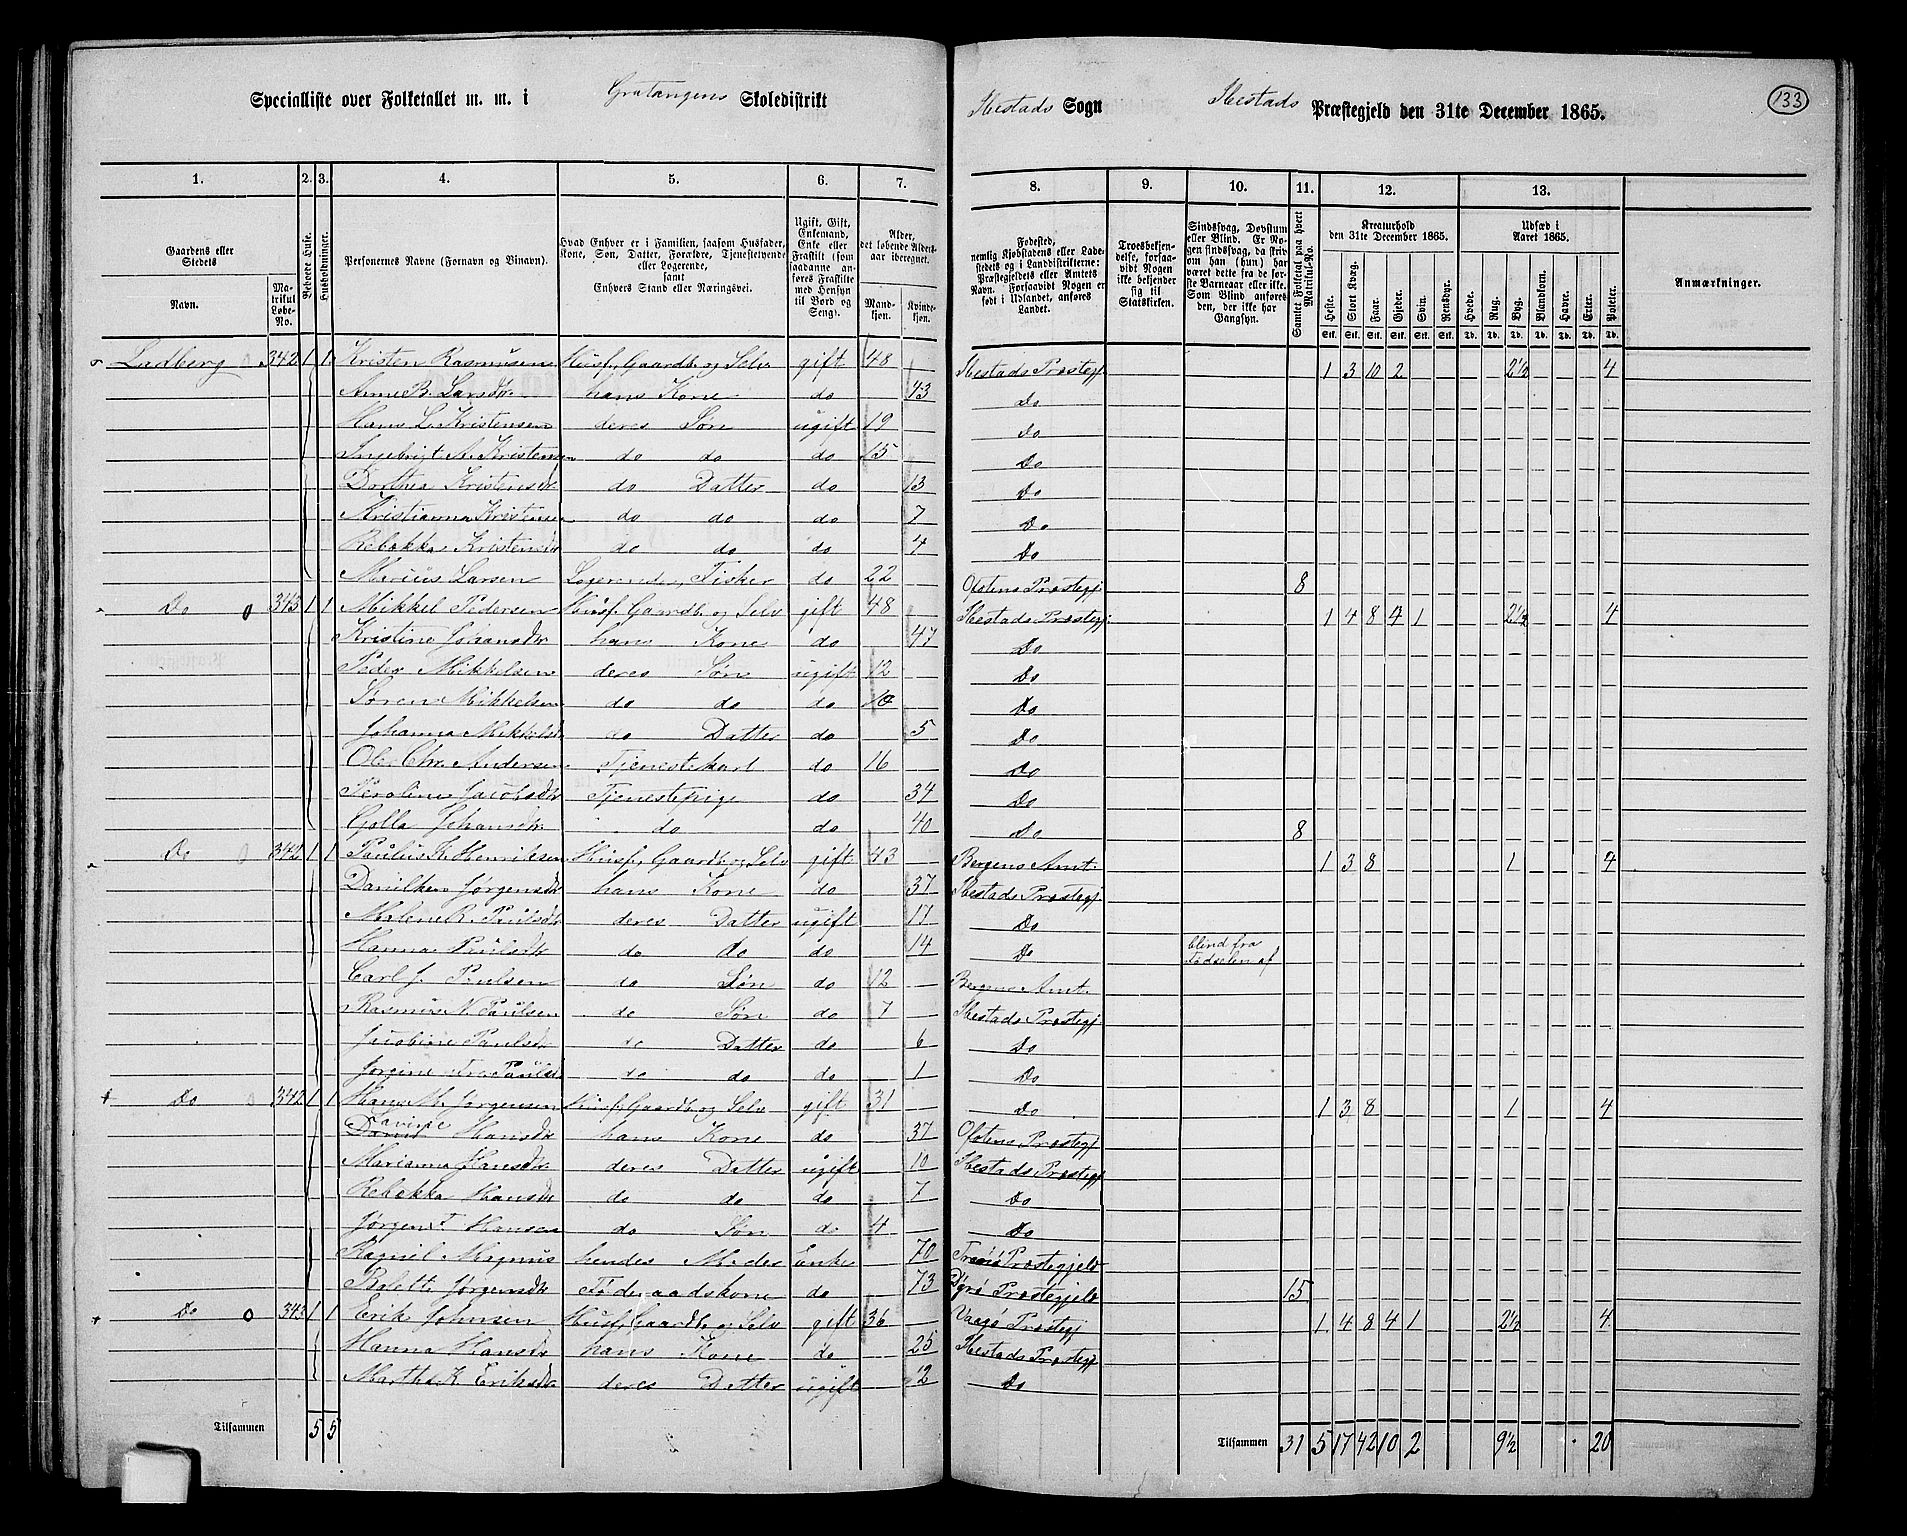 Specialliste over Folketallet m. m. i Gratangens Skoledistrikt
Ibestads Sogn Ibestads Præstegjeld den 31te December 1865.
133
1. 2. 3. 4. 5. 6. 7. 8. 9. 10. 11. 12. 13.
Gaardens eller Stedets
Navn.
Matrikul Løbe-No.
Beboede Huse.
Husholdninger.
Personernes Navne (Fornavn og Binavn).
Hvad Enhver er i Familien, saasom Husfader, Kone, Søn, Datter, Forældre, Tjenestetyende eller Logerende, samt Enhvers Stand eller Næringsvei.
Ugift, Gift, Enkemand, Enke eller Fraskilt (som saadanne anføres Fraskilte med Hensyn til Bord og Seng).
Alder, det løbende Alders-aar iberegnet.
Mandkjøn. Kvindekjøn.
Fødested, nemlig Kjøbstadens eller Ladestedets og i Landdistrikterne: Præstegjeldets eller Amtets Navn. Forsaavidt Nogen er født i Udlandet, anføres Landet.
Troesbekjendelse, forsaavidt Nogen ikke bekjender sig til Statskirken.
Sindssvag, Døvstum eller Blind. Er Nogen sindssvag, da skriv om han (hun) har været dette fra de første Barneaar eller ikke. Som Blind anføres den, der ikke har Gangsyn.
Samlet Folketal paa hvert Matrikul-No.
Kreaturhold den 31te December 1865.
Heste. Stort Kvæg. Faar. Gjeder. Svin. Rensdyr.
Udsæd i Aaret 1865.
Hvede. Rug. Byg. Blandkorn. Havre. Erter. Poteter.
Anmærkninger.
Ludberg 342 1 1 Kristen Rasmusens Husf. Gaardb. og Selv gift 48 Ibestads Præstegj 1 3 10 2 2½ 4
Anne B. Larsdtr. hans Kone do 43 Do
Hans L. Kristensen deres Søn ugift 19 Do
Ingebrigt A. Kristensen do do do 15 Do
Dorthea Kristensdtr do Datter do 13 Do
Kristianna Kristensen do do do 7 Do
Rebekka Kristensdtr do do do 4 Do
Marius Larsen Logerende, Fisker do 22 Ofotens Præstegj 8
Do 0 343 1 1 Mikkel Pedersen Husf. Gaardb. og Selv gift 48 Ibestads Præstegj. 1 4 8 4 1 2½ 4
Kristine Johansdtr hans Kone do 47 Do
Peder Mikkelsen deres Søn ugift 12 Do
Søren Mikkelsen do do do 10 Do
Johanna Mikkelsdtr do Datter do 5 Do
Ole Chr. Andersen Tjenestekarl do 16 Do
Karoline Jacobsdtr Tjenestepige do 34 Do
Golla Johansdtr. do do 40 Do 8
Do 0 342 1 1 Paulus K. Henriksen Husf. Gaardb. og Selv gift 43 Bergens Amt. 1 3 8 1 4
Danilken Jørgensdtr hans Kone do 37 Ibestads Præstegj.
Malene R. Paulsdtr deres Datter ugift 17 Do
Hanna Paulsdtr do Do do 14 Do blind fra Fødselen af
Carl J. Paulsen do Søn do 12 Bergens Amt.
Rasmus N. Paulsen do Søn do 7 Ibestads Præstegj
Jacobine Paulsdtr do Datter do 6 Do
Jørgine Paulsdtr do do do 1 Do
Do 0 342 1 1 Hans M. Jørgensen Husf. Gaardb. og Selv gift 31 Do 1 3 8 1 4
Lavine Hansdtr hans Kone do 37 Ofotens Præstegj
Marianna Hansdtr deres Datter ugift 10 Ibestads Præstegj
Rebekka Hansdtr do do do 7 Do
Jørgen T Hansen do Søn do 4 Do
Magnus hendes Moder Enke 70 Præstegjeld
Jørgensdtr Føderaadskone do 73 Præstegjeld 15
Do 0 343 1 1 Erik Johnsen Husf. Gaardb. og Selv gift 36 Vaagø Præstegj 1 4 8 4 1 2½ 4
Hanna Hansdtr hans Kone do 25 Ibestads Præstegj
Martha K Eriksdtr deres Datter ugift 2 Do
Tilsammen 5 5 Tilsammen 31 5 17 42 10 2 9½ 20